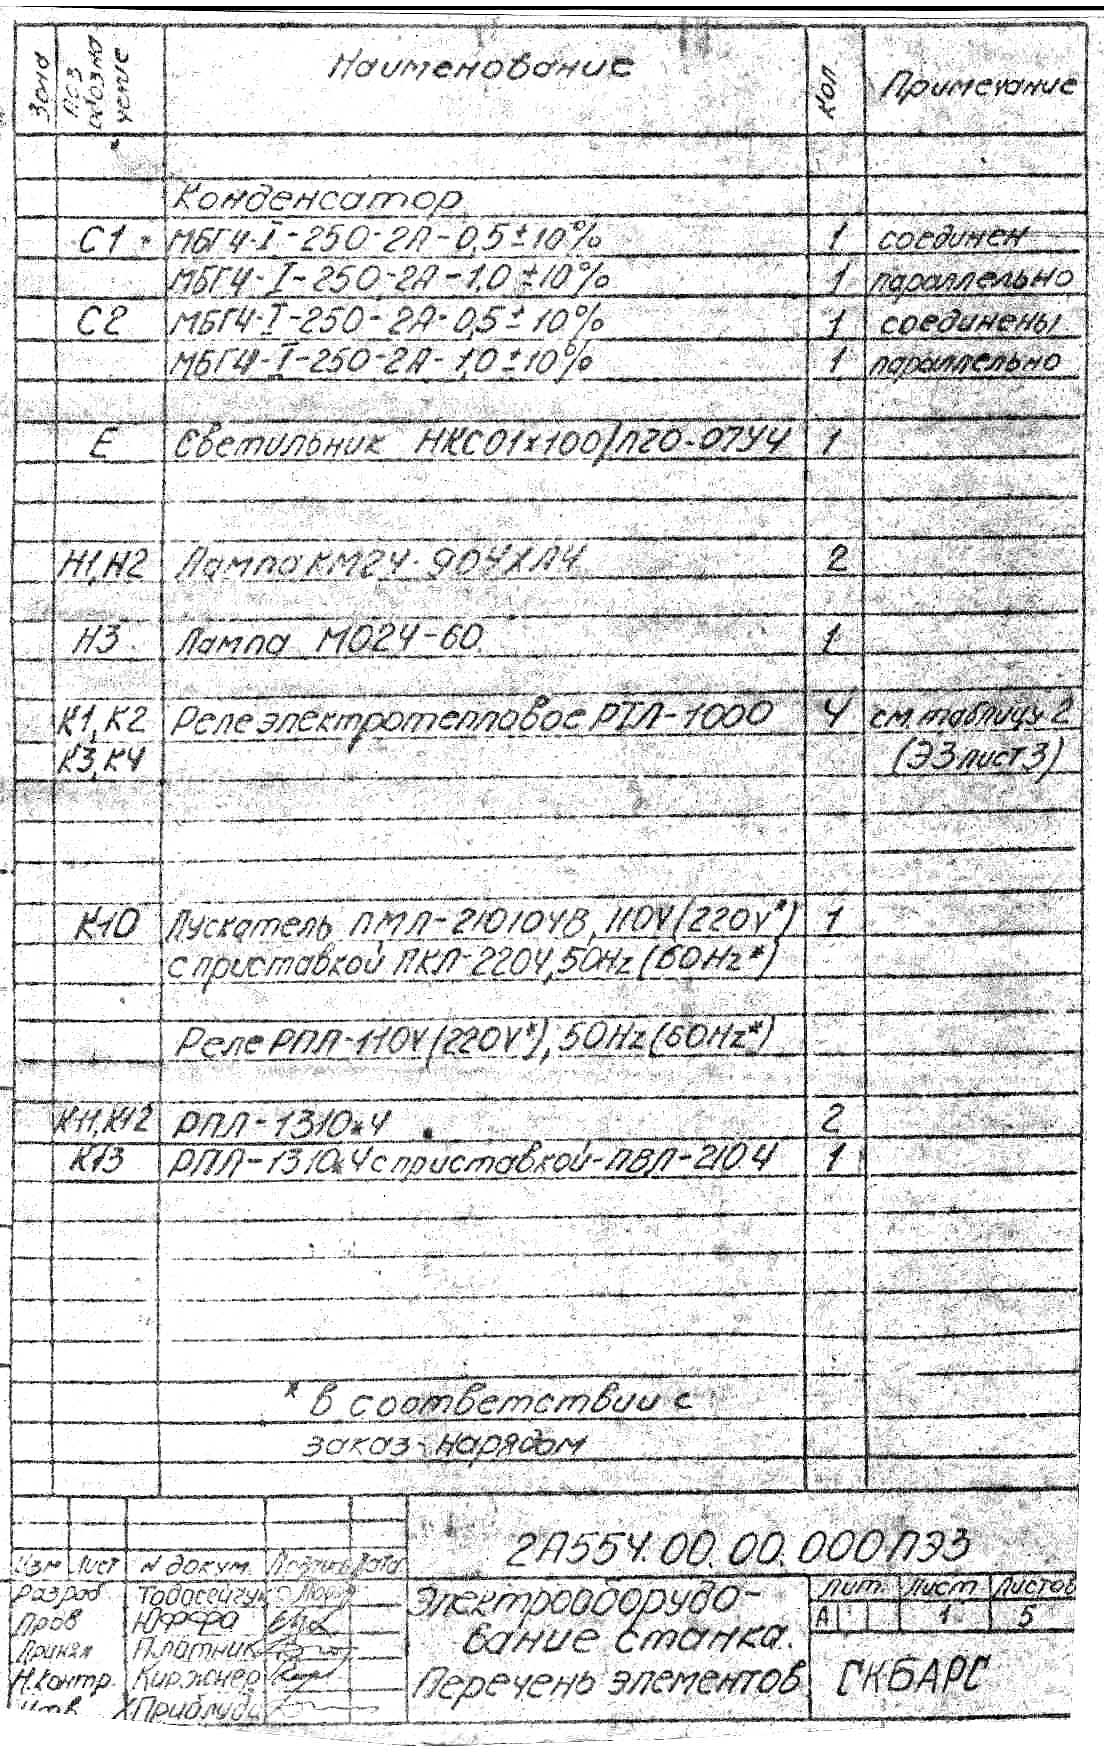 Зона
Поз обозначение
Наименование
Кол
Примечание
Конденсатор
С1 МБГЧ-I-250-2А-0,5±10% 1 соединен
МБГЧ-I-250-2А-1,0±10% 1 параллельно
С2 МБГЧ-I-250-2А-0,5±10% 1 соединены
МБГЧ-I-250-2А-1,0±10% 1 параллельно
Е Светильник НКС01х100/П20-07У4 1
Н1,Н2 Лампа КМ24-90УХЛ4 2
Н3 Лампа МО24-60 1
К1,К2 Реле электротепловое РТЛ-1000 4 см. таблицу 2
К3,К4 (Э3 лист 3)
К10 Пускатель ПМЛ-210104В, 110V(220V*) 1
с приставкой ПКЛ-2204, 50Hz(60Hz*)
Реле РПЛ-110V(220V*), 50Hz(60Hz*)
К11,К12 РПЛ-1310*4 2
К13 РПЛ-1310*4 с приставкой-ПВЛ-2104 1
* в соответствии с
заказ-нарядом
2А554.00.00.000ПЭ3
Изм Лист N докум. Подпись Дата
Разраб
Пров Юффа
Принял Платник
Н.контр. Киржнер
Утв.
Электрооборудо-
вание станка.
Перечень элементов
Лит. Лист Листов
А 1 5
СКБАРС